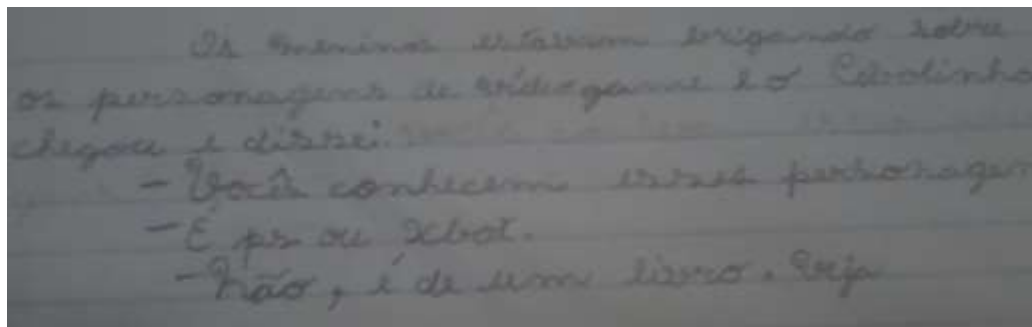 Os meninos estavam brigando sobre
os personagens de vídeogame e o Cebolinha
chegou e dissei:
- Você conhecem esses personagen
- É ps ou xbot.
- Não, é de um livro. Veja